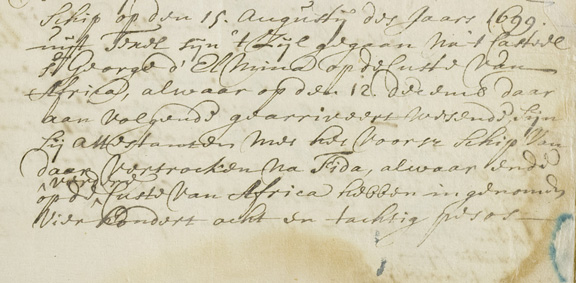 Schip op den 15. Augustij des Jaars 1699.
uijt Texel sijn 't Zijl gegaan na't Casteel
St George d'El Mina op de Custe van
Africa, alwaar op den 12. decemb daar
aan volgende gearriveert wesende, sijn
sij attestanten met het voorsz Schip van
daar vertrocken na Fida, alwaar ende
op de Custe van Africa hebben ingenomen
vier hondert acht en tachtig pesos